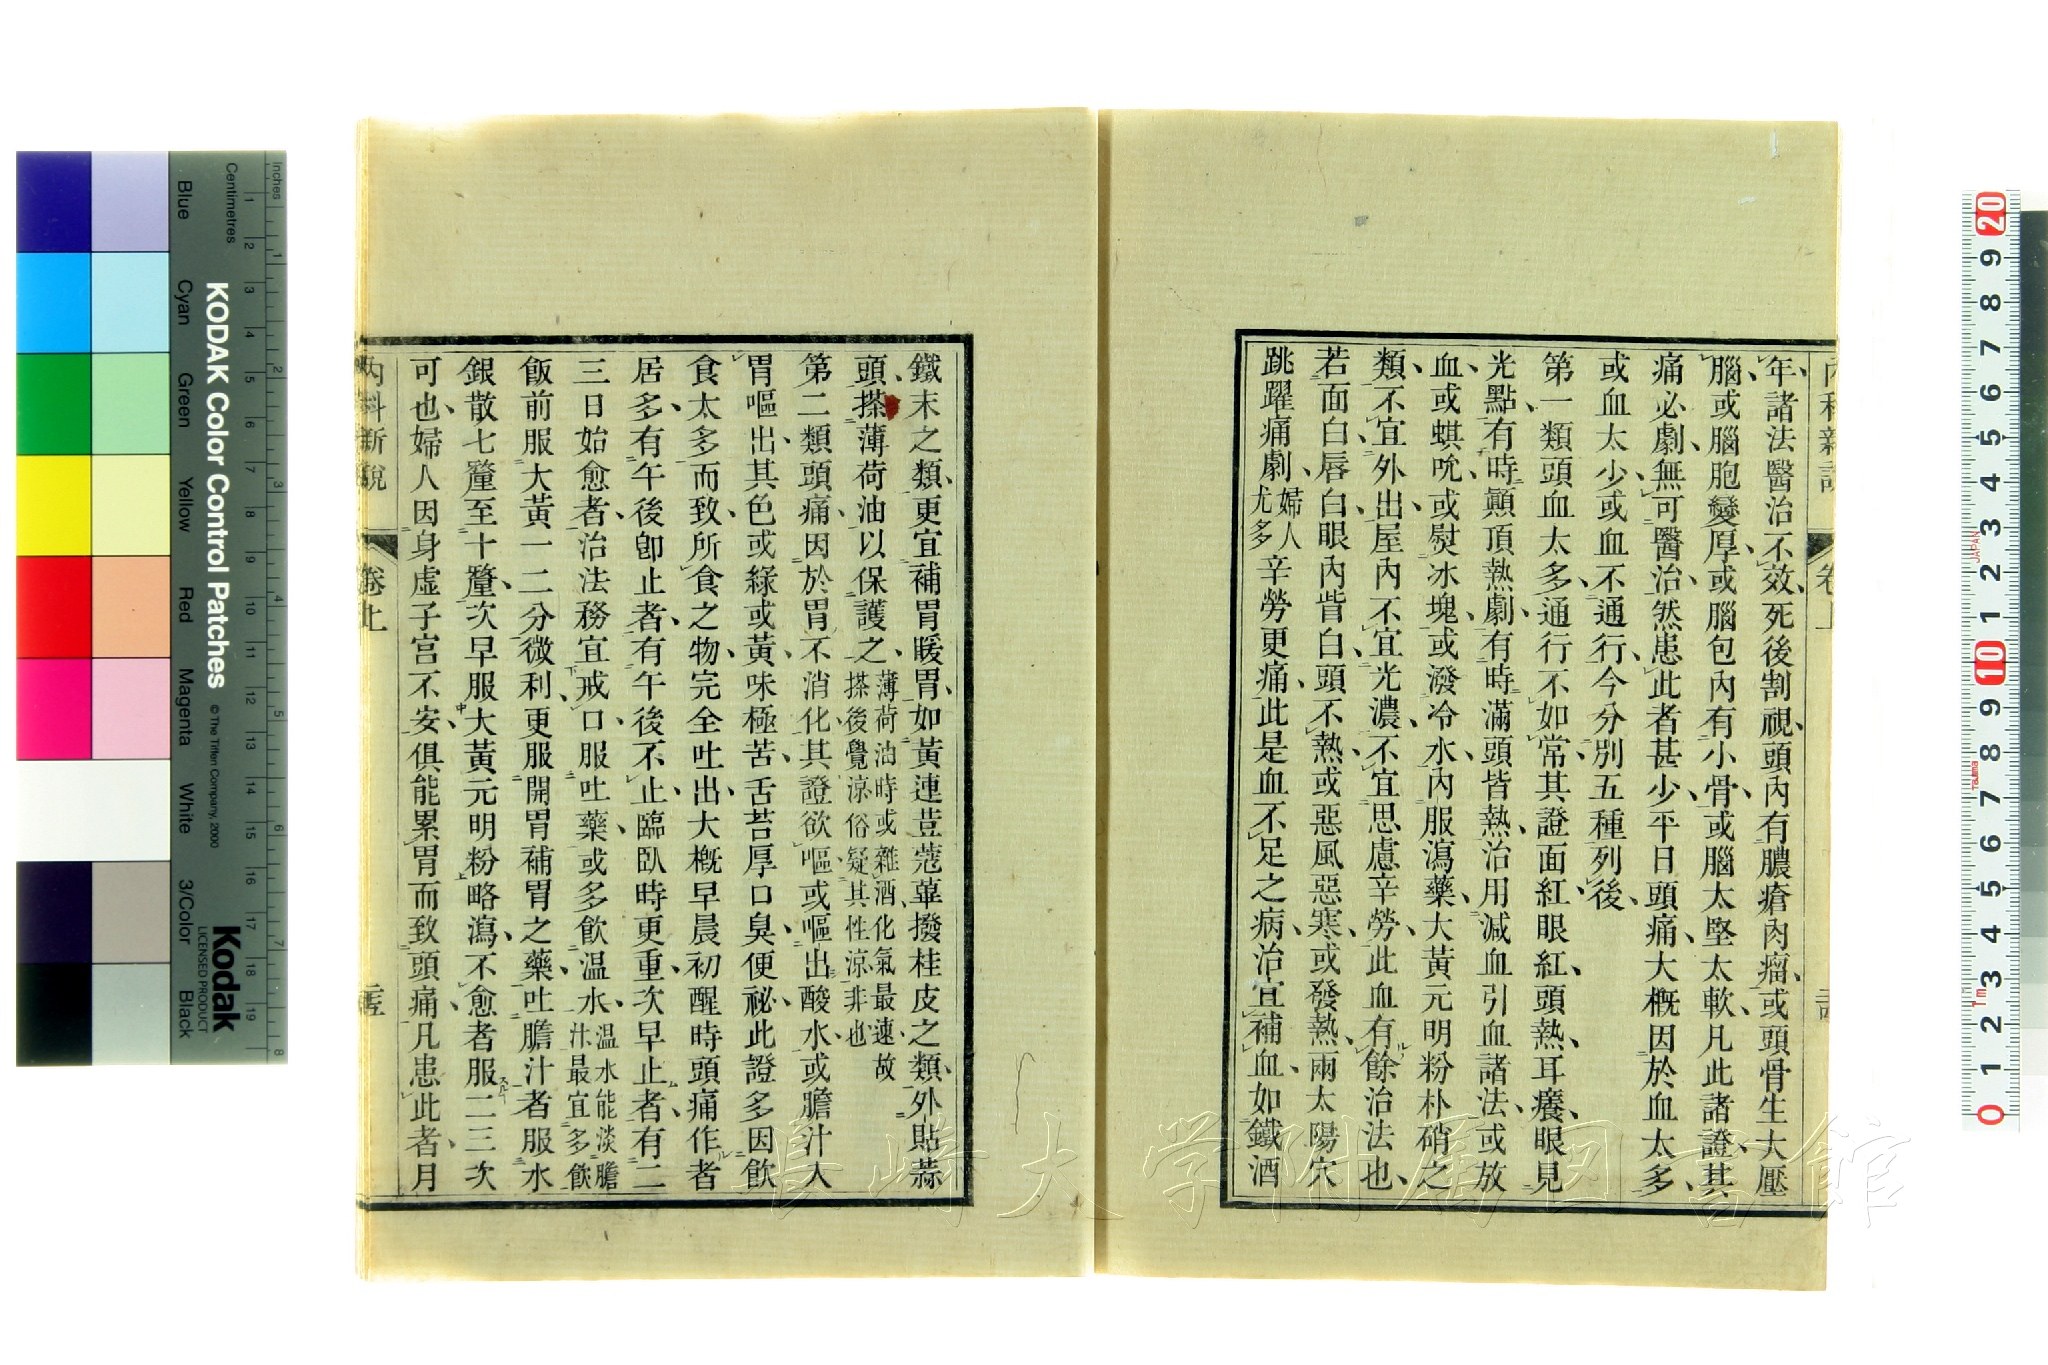 年諸法醫治不效死後割視頭內有膿瘡肉瘤或頭骨生大壓
腦或腦胞變厚或腦包內有小骨或腦太堅太軟凡此諸證其
痛必劇無可醫治然患此者甚少平日頭痛大槪因於血太多
或血太少或血不通行今分別五種列後
第一類頭血太多通行不如常其證面紅眼紅頭熱耳癢眼見
光點有時顚頂熱劇有時滿頭皆熱治用減血引血諸法或放
血或蜞吮或熨冰塊或潑冷水內服瀉藥大黃元明粉朴硝之
類不宜外出屋內不宜光濃不宜思慮辛勞此血有餘治法也
若面白唇白眼內眥白頭不熱或惡風惡寒或發熱兩太陽穴
跳躍痛劇婦人尤多辛勞更痛此是血不足之病治宜補血如鐵酒
鐵末之類更宜補胃暖胃如黃連荳蔲蓽撥桂皮之類外貼蒜
頭搽薄荷油以保護之薄荷油時或雜酒化氣最速故搽後覺涼俗疑其性涼非也
第二類頭痛因於胃不消化其證欲嘔或嘔出酸水或膽汁入
胃嘔出其色或綠或黃味極苦舌苔厚口臭便祕此證多因飮
食太多而致所食之物完全吐出大槪早晨初醒時頭痛作者
居多有午後卽止者有午後不止臨臥時更重次早止者有二
三日始愈者治法務宜戒口服吐藥或多飮温水温水能淡膽汁最宜多飮
飯前服大黃一二分微利更服開胃補胃之藥吐膽汁者服水
銀散七釐至十釐次早服大黃元明粉略瀉不愈者服二三次
可也婦人因身虛子宮不安俱能累胃而致頭痛凡患此者月
內科新說
卷上
長崎大学附属図書館
KODAK Color Control Patches
© The Tiffen Company, 2000
Kodak
LICENSED PRODUCT
Inches
Centimetres
Blue
Cyan
Green
Yellow
Red
Magenta
White
3/Color
Black
JAPAN